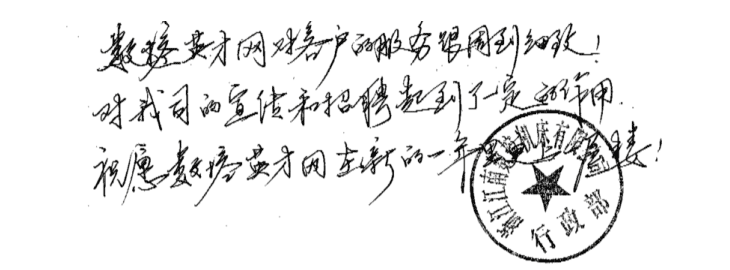 数控英才网对客户的服务很周到细致!
对我司的宣传和招聘起到了一定的作用.
祝愿数控英才网在新的一年里更上一层楼!
浙江江南机床有限
行政部